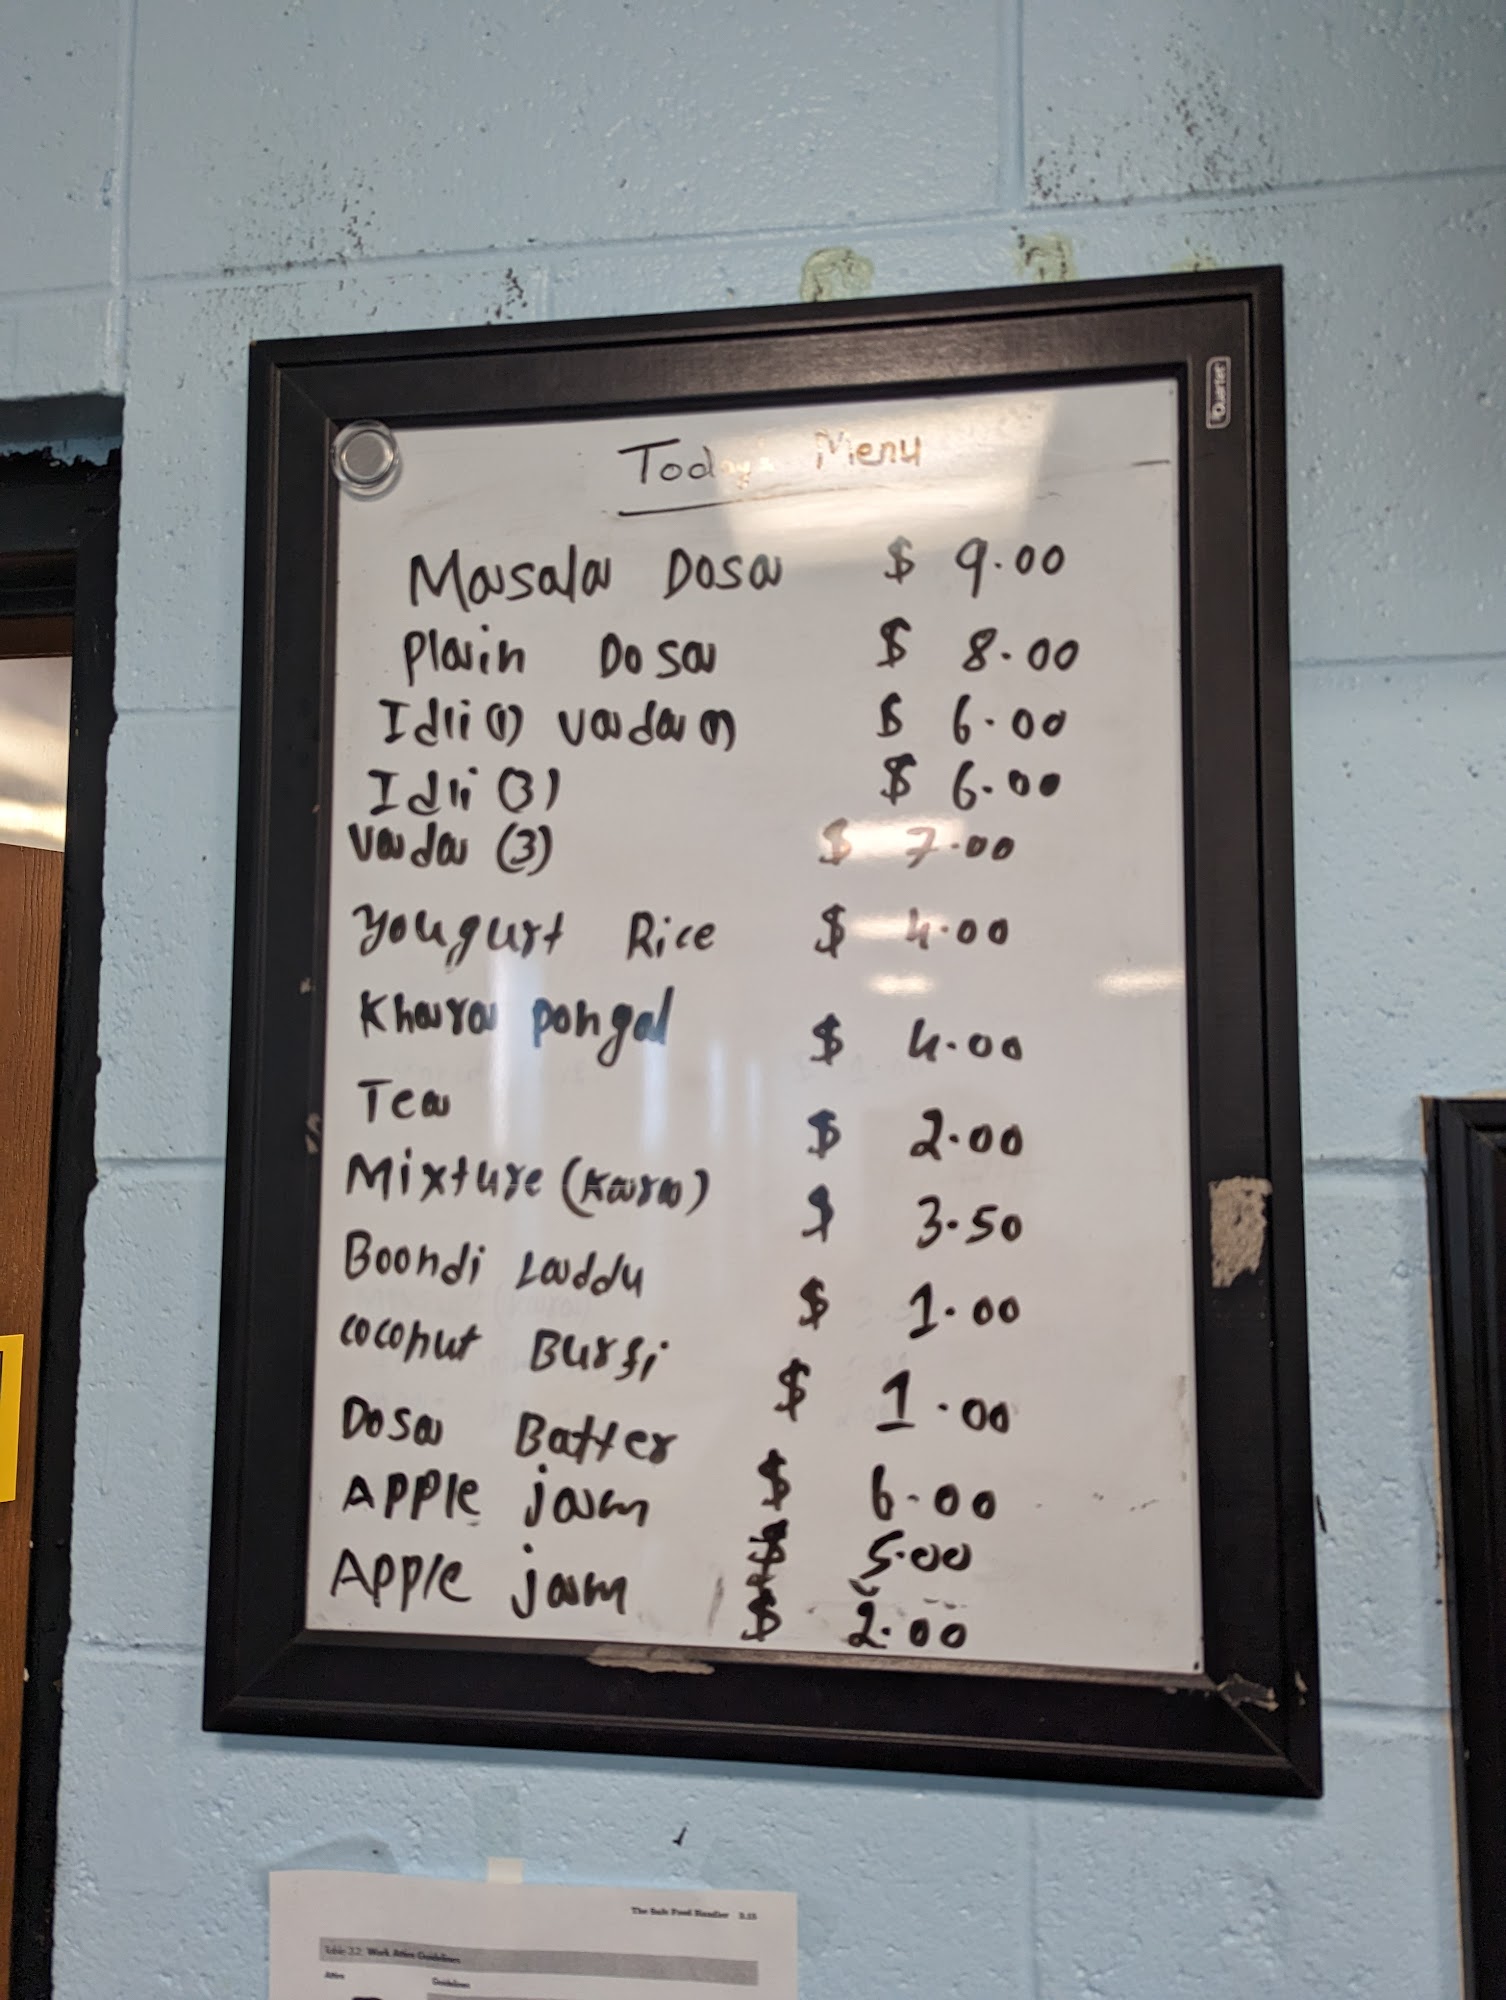 Quartet
Today's Menu
Masala Dosa $ 9.00
Plain Dosa $ 8.00
Idli (1) Vada (1) $ 6.00
Idli (3) $ 6.00
Vada (3) $ 7.00
Yougurt Rice $ 4.00
Khara pongal $ 4.00
Tea $ 2.00
Mixture (Kara) $ 3.50
Boondi Laddu $ 1.00
coconut Burfi $ 1.00
Dosa Batter $ 6.00
Apple jam $ 5.00
Apple jam $ 2.00
The Safe Food Handler 3.15
Table 3.2 Work Attire Guidelines
Attire Guidelines